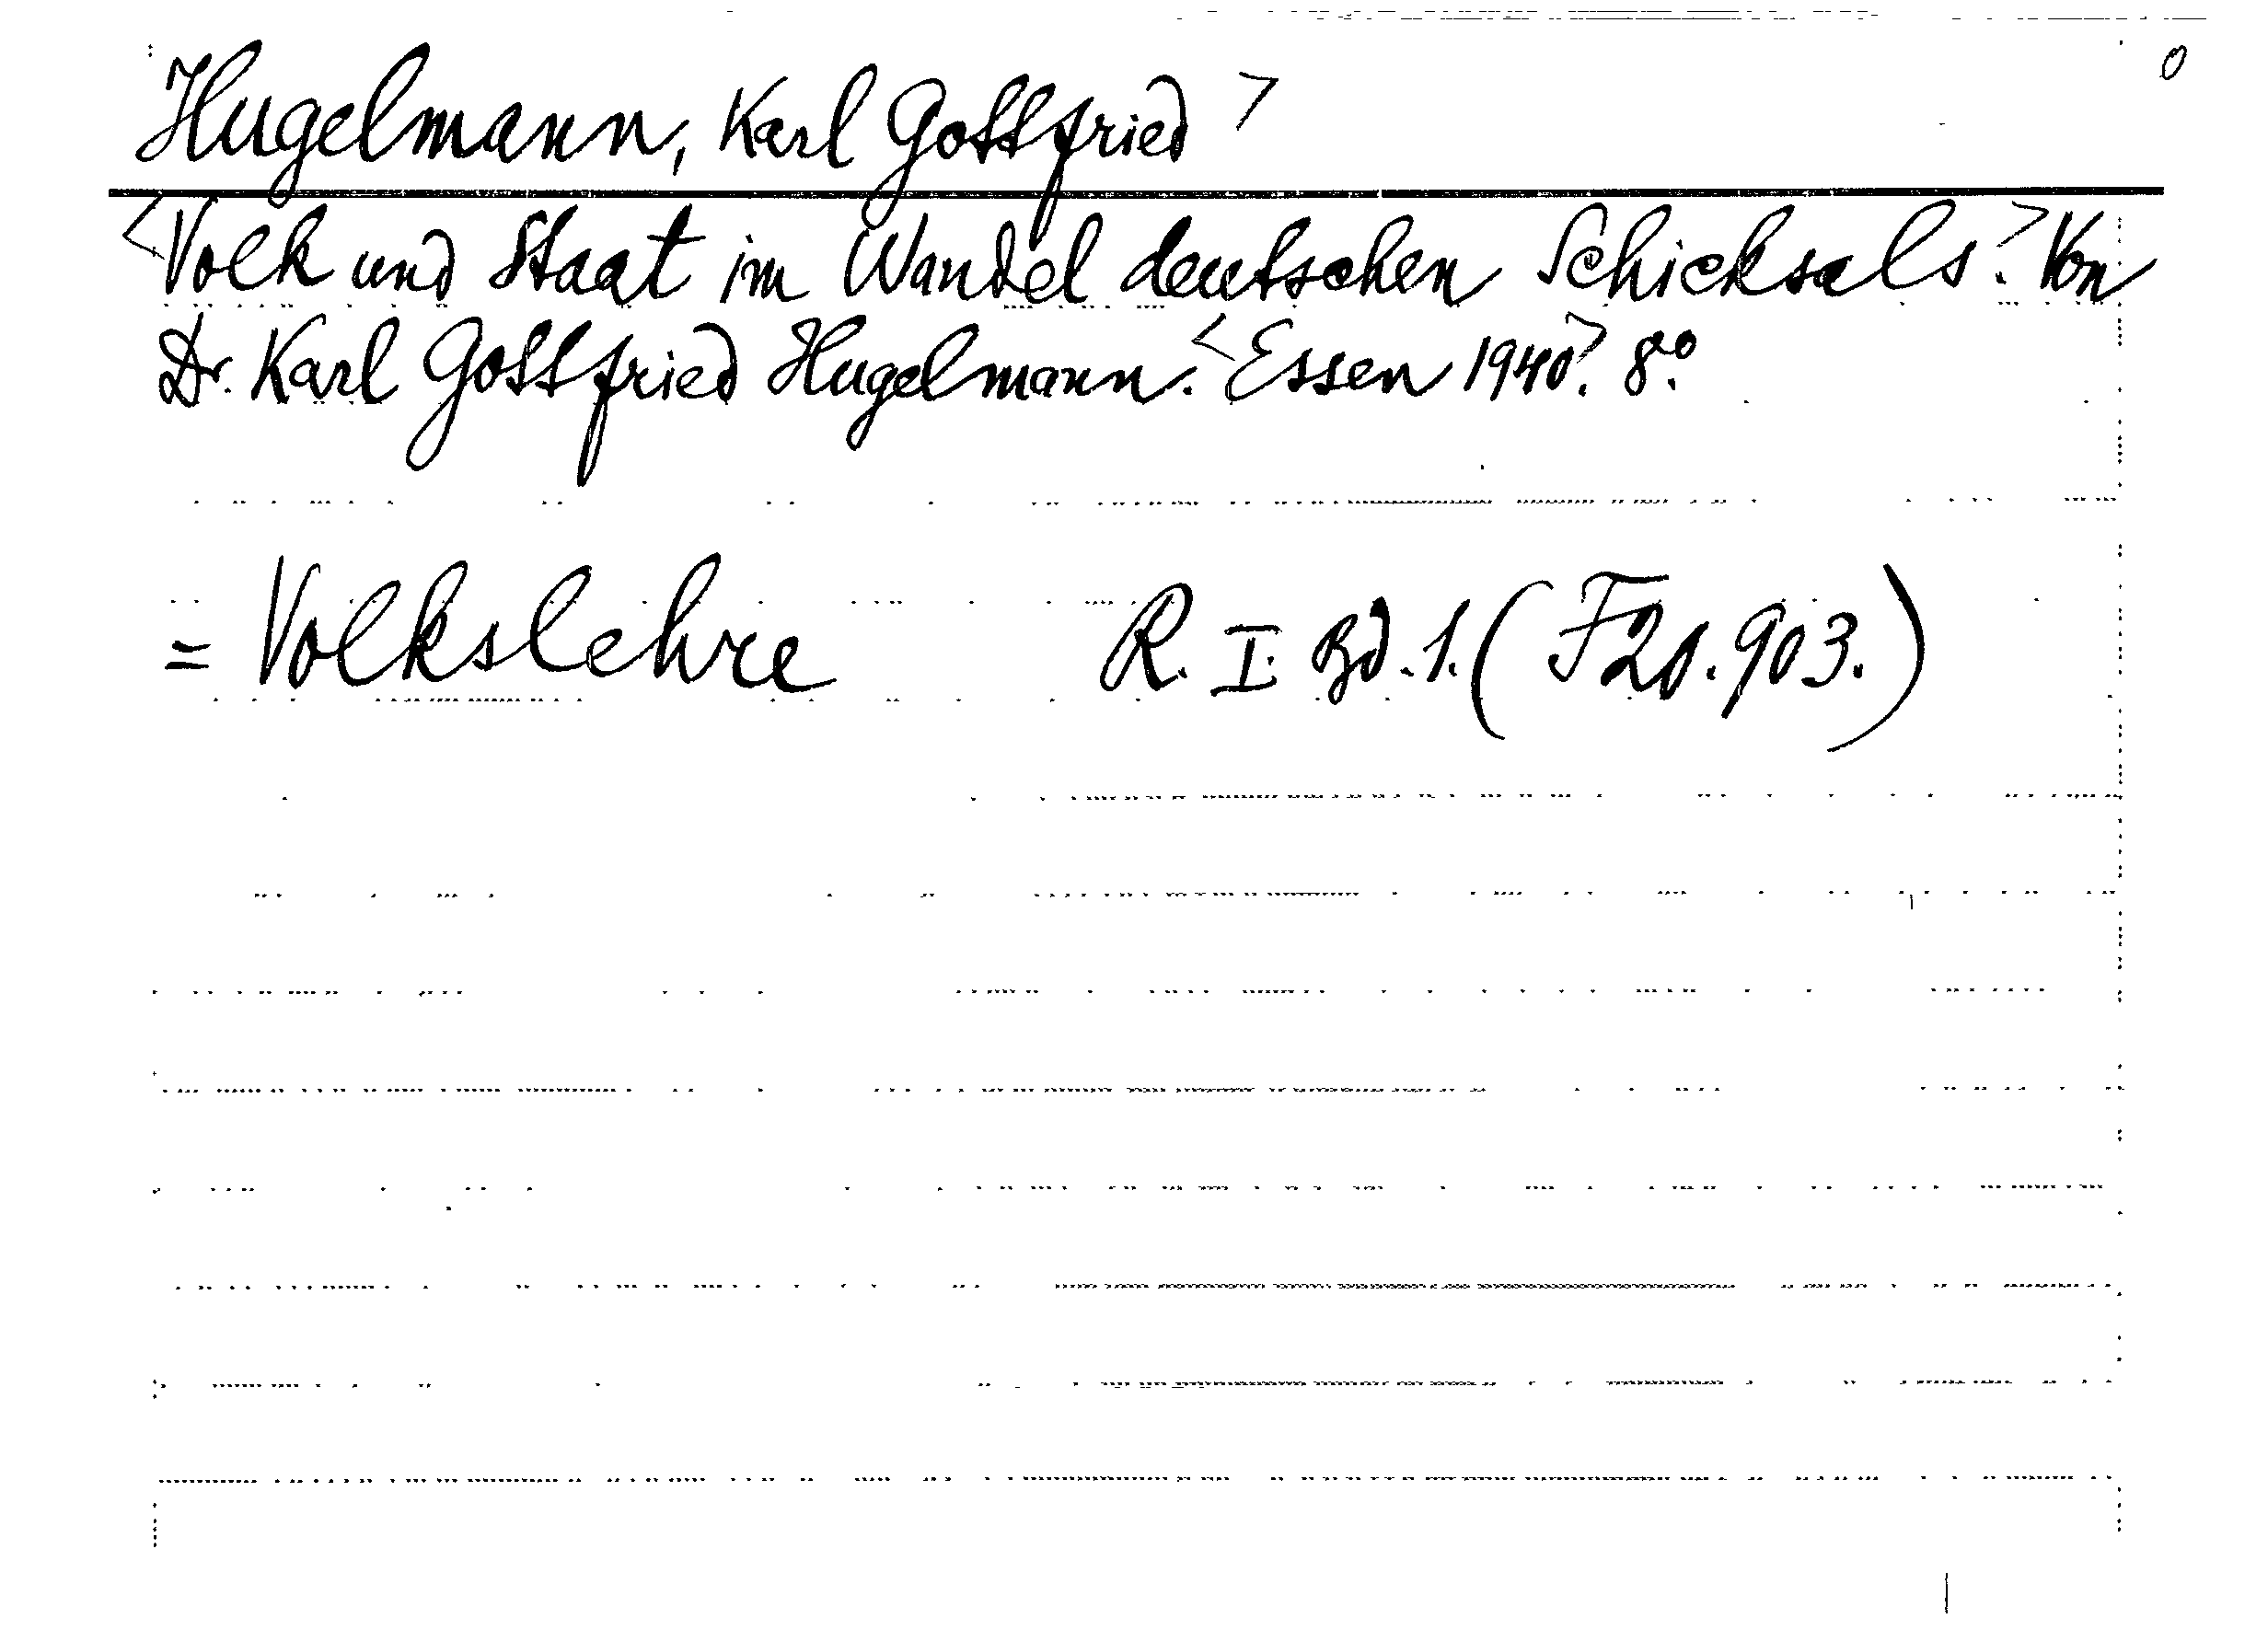 Hugelmann, Karl Gottfried > 0
<Volk und Staat im Wandel deutschen Schicksals.> Von
Dr. Karl Gottfried Hugelmann. <Essen 1940>. 8°.
= Volkslehre R. I. Bd. 1. (F20.903.)